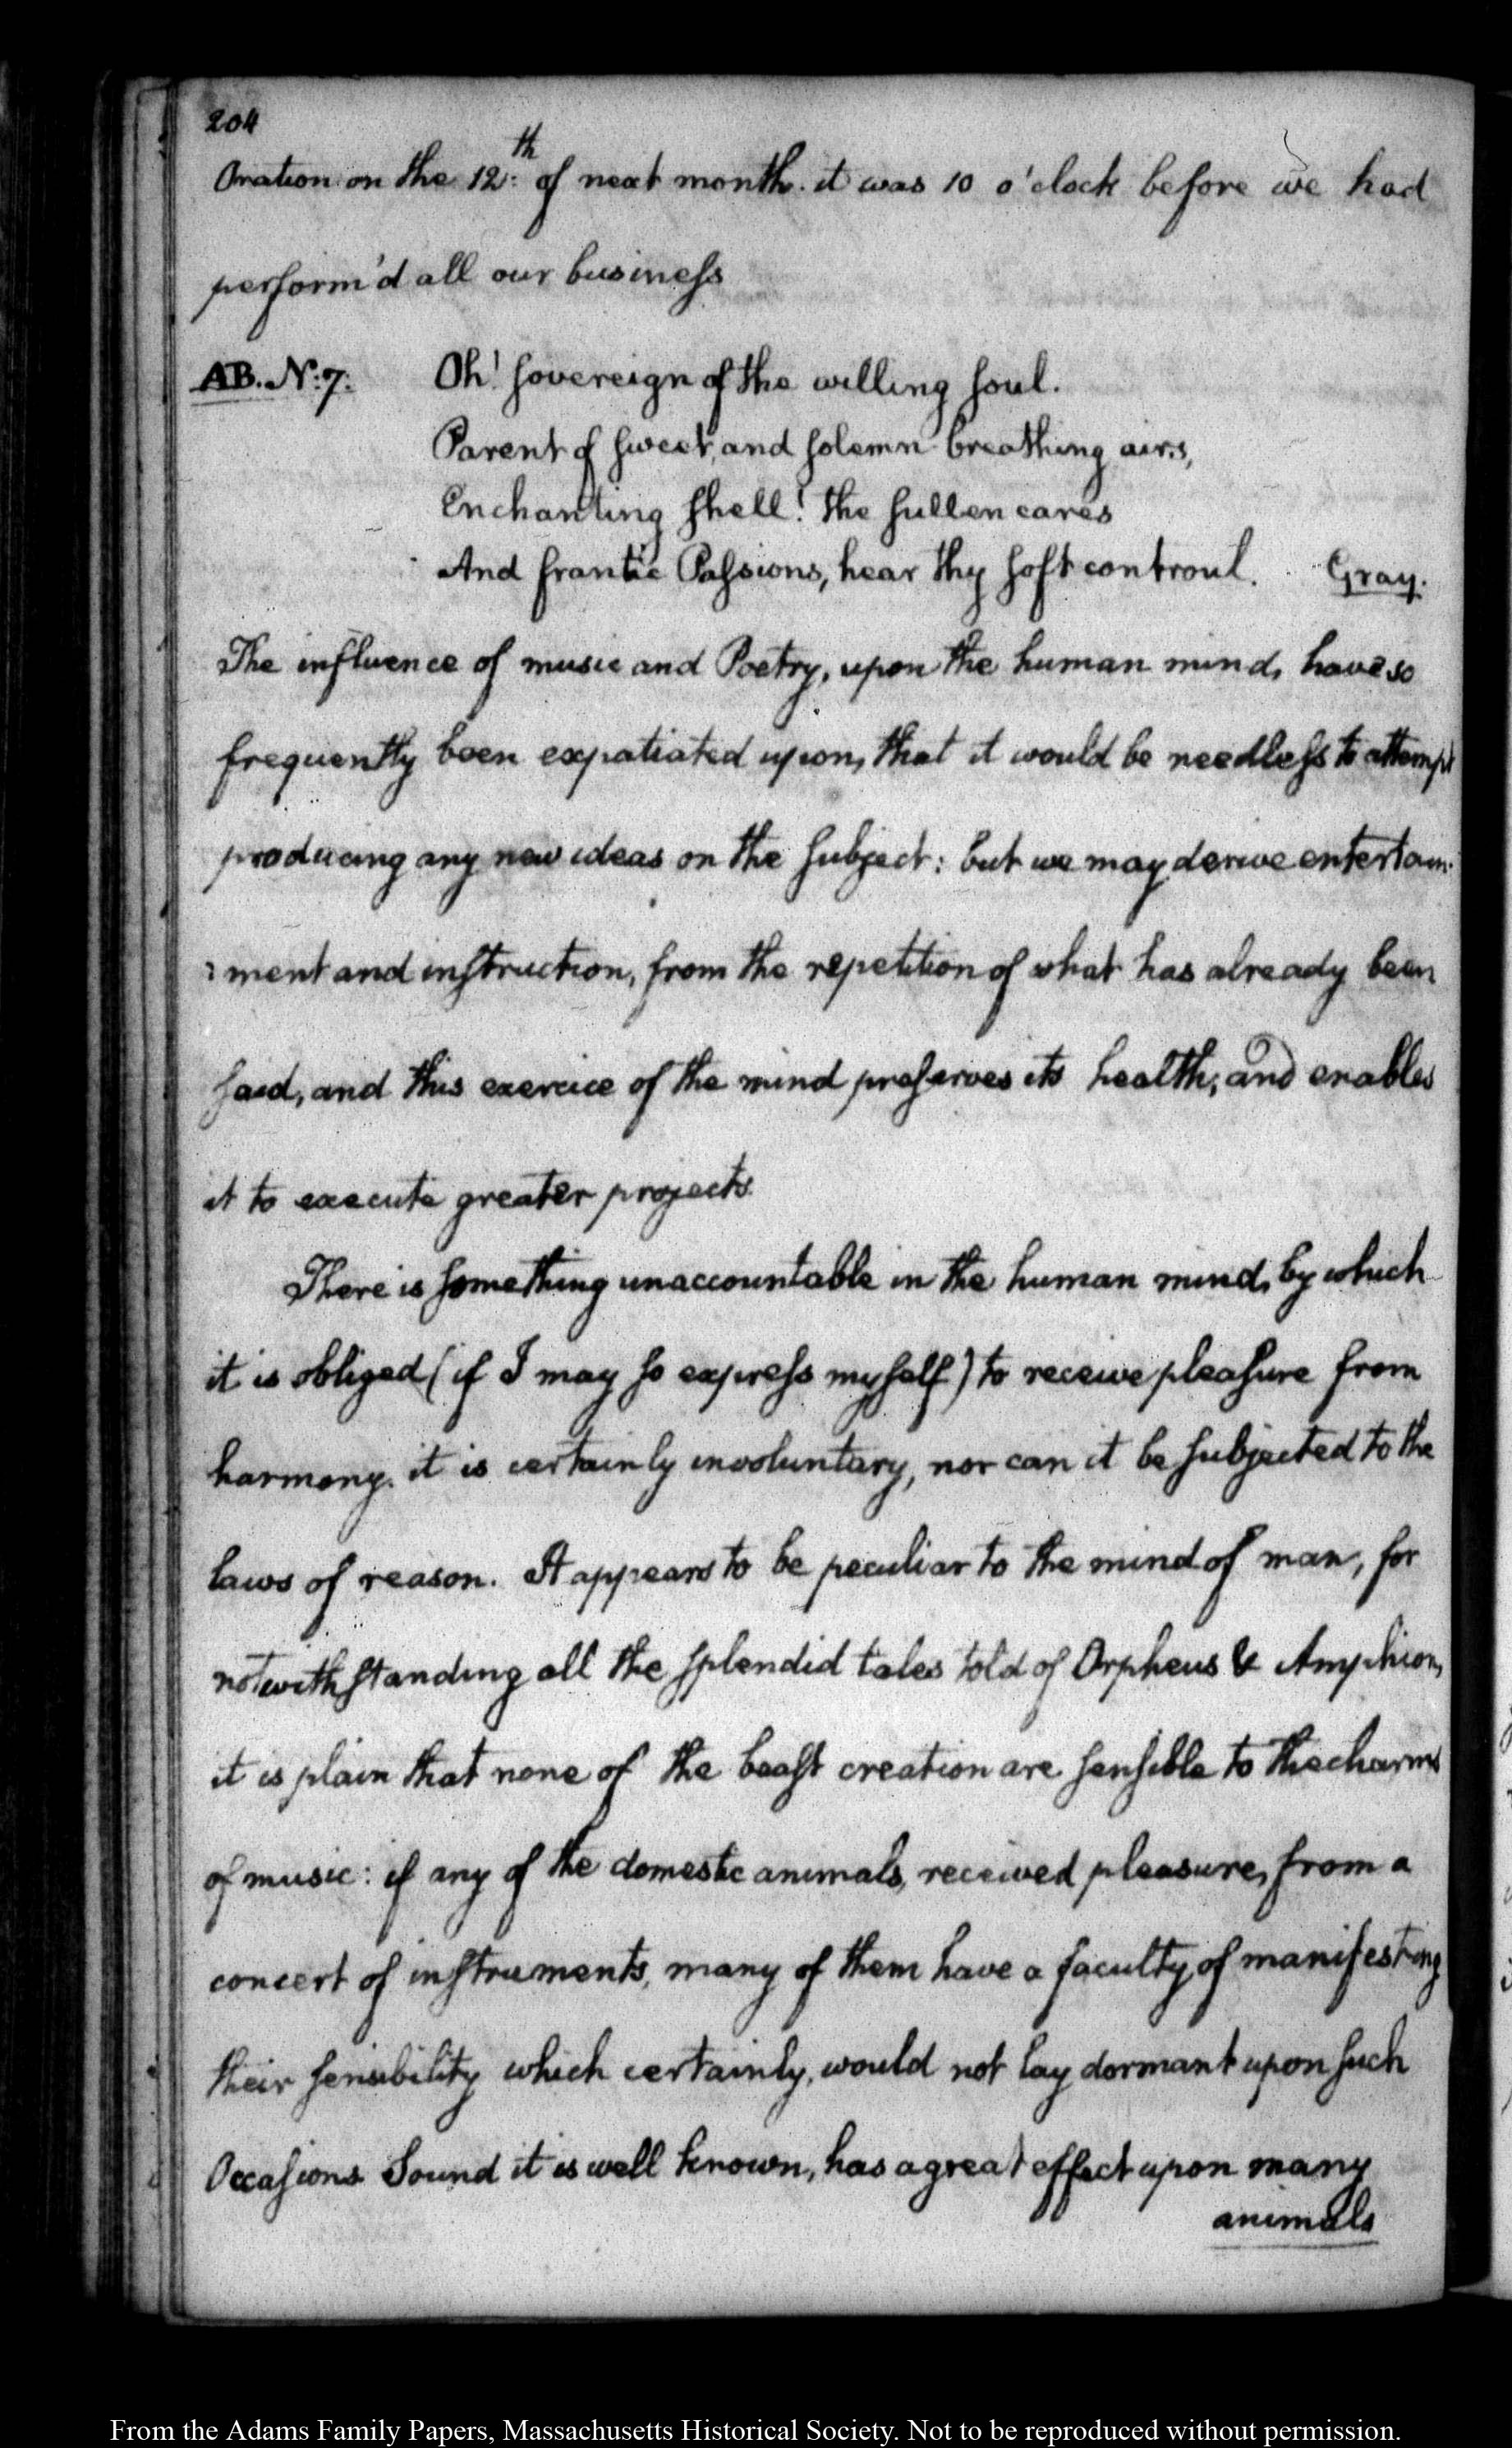 204
Oration on the 12th: of next month. it was 10 o'clock before we had
perform'd all our business
AB. N:7. Oh! sovereign of the willing soul.
Parent of sweet, and solemn breathing airs,
Enchanting shell! the sullen cares
And frantic Passions, hear thy soft controul. Gray.
The influence of music and Poetry, upon the human mind, have so
frequently been expatiated upon, that it would be needless to attempt
producing any new ideas on the subject: but we may derive entertain:
:ment and instruction, from the repetition of what has already been
said, and this exercice of the mind preserves its health, and enables
it to execute greater projects.
There is something unaccountable in the human mind, by which
it is obliged (if I may so express myself) to receive pleasure from
harmony. it is certainly involuntary, nor can it be subjected to the
laws of reason. It appears to be peculiar to the mind of man, for
notwithstanding all the splendid tales told of Orpheus & Amphion,
it is plain that none of the beast creation are sensible to the charms
of music: if any of the domestic animals, received pleasure, from a
concert of instruments, many of them have a faculty of manifesting
their sensibility which certainly, would not lay dormant upon such
Occasions Sound it is well known, has a great effect upon many
animals
From the Adams Family Papers, Massachusetts Historical Society. Not to be reproduced without permission.